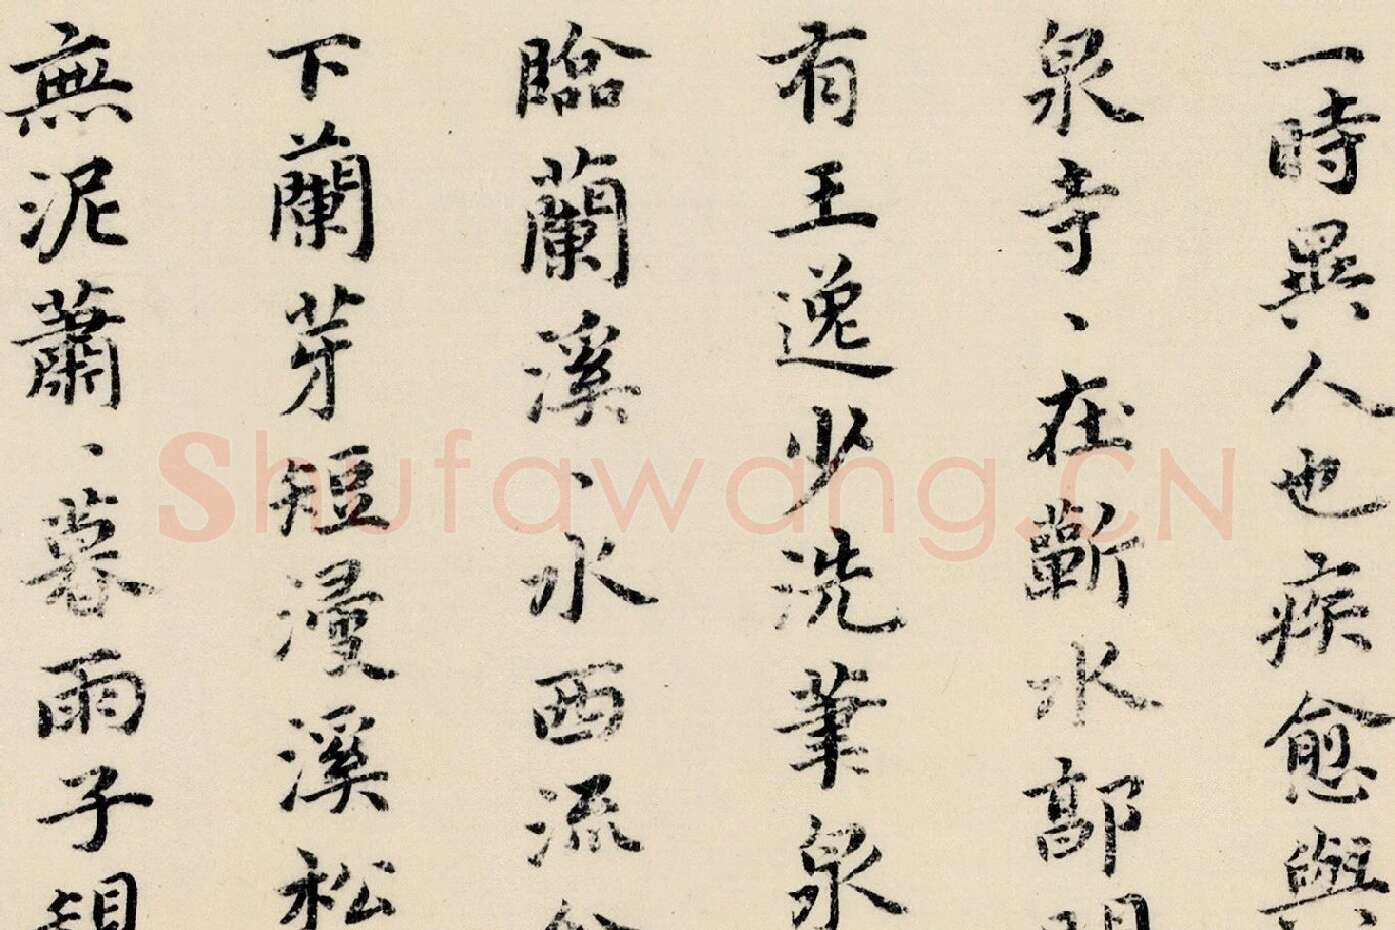 一時異人也疾愈與
泉寺、在蘄水郭門
有王逸少洗筆泉
臨蘭溪、水西流
下蘭芽短漫溪松
無泥蕭、暮雨子規
Shufawang.CN